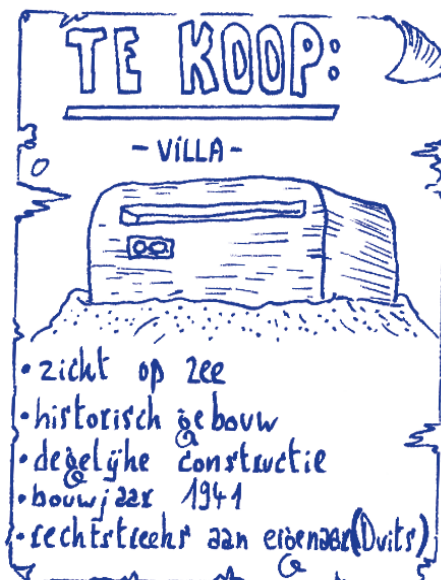 TE KOOP:
- VILLA -
• zicht op zee
• historisch gebouw
• degelijke constructie
• bouwjaar 1941
• rechtstreeks aan eigenaar (Duits)